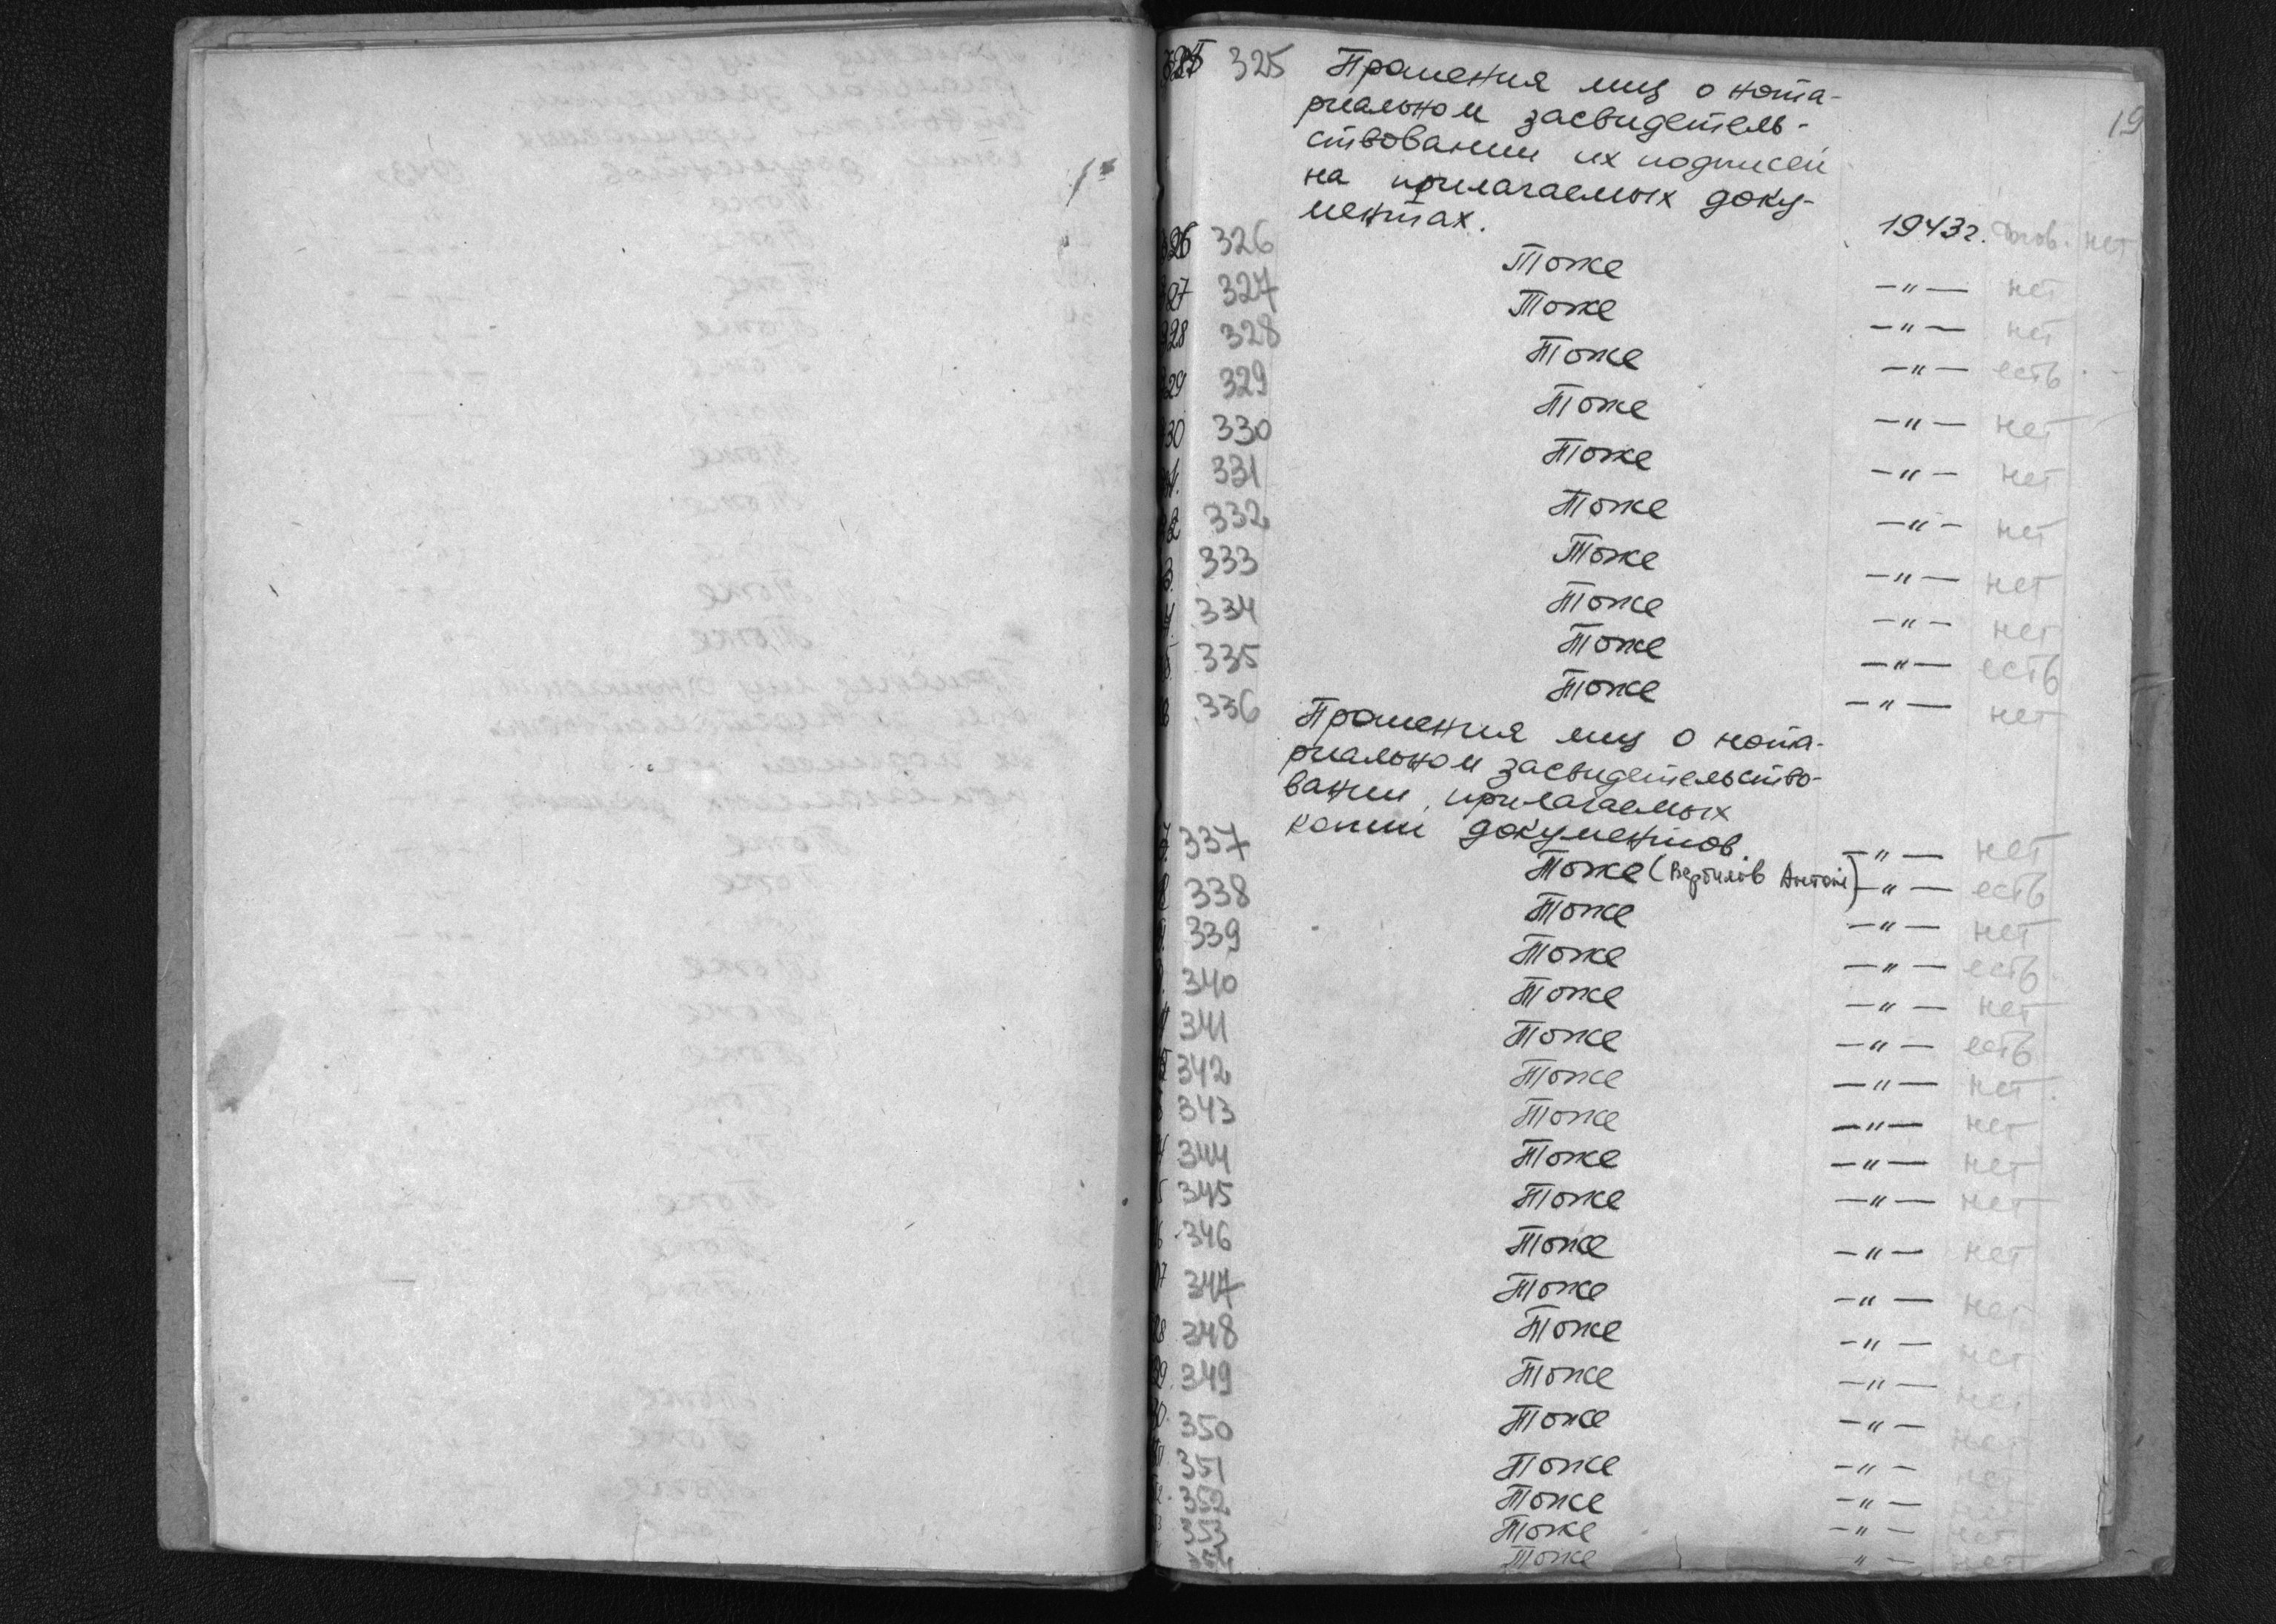 325 Прошения лиц о нота-
риальном засвидетель-
ствовании их подписей
на прилагаемых доку-
ментах. 1943г. нет
19
326 Тоже —"— нет
327 Тоже —"— нет
328 Тоже —"— есть
329 Тоже —"— нет
330 Тоже —"— нет
331 Тоже —"— нет
332 Тоже —"— нет
333 Тоже —"— нет
334 Тоже —"— есть
335 Тоже —"— нет
336 Прошения лиц о нота-
риальном засвидетельство-
вании прилагаемых
копии документов. —"— нет
337 Тоже ( Антон) —"— есть
338 Тоже —"— нет
339 Тоже —"— есть
340 Тоже —"— нет
341 Тоже —"— есть
342 Тоже —"— нет
343 Тоже —"— нет
344 Тоже —"— нет
345 Тоже —"— нет
346 Тоже —"— нет
347 Тоже —"— нет
348 Тоже —"— нет
349 Тоже —"— нет
350 Тоже —"— нет
351 Тоже —"— нет
352 Тоже —"—
353 Тоже —"— нет
Тоже —"— нет